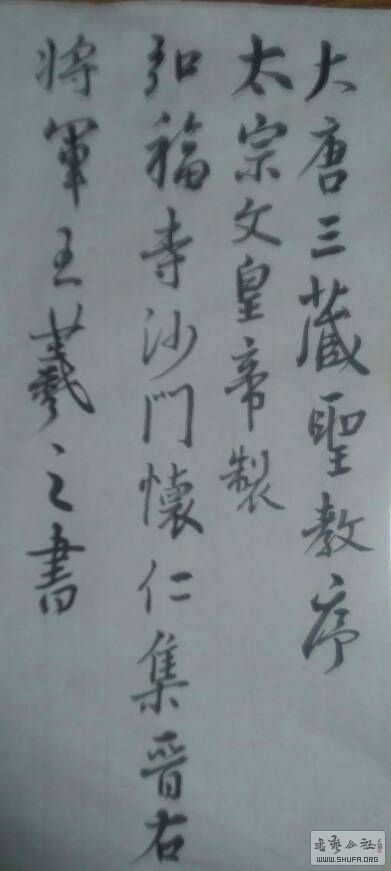 大唐三藏聖教序
太宗文皇帝製
弘福寺沙門懷仁集晉右
將軍王羲之書
WWW.SHUFA.ORG